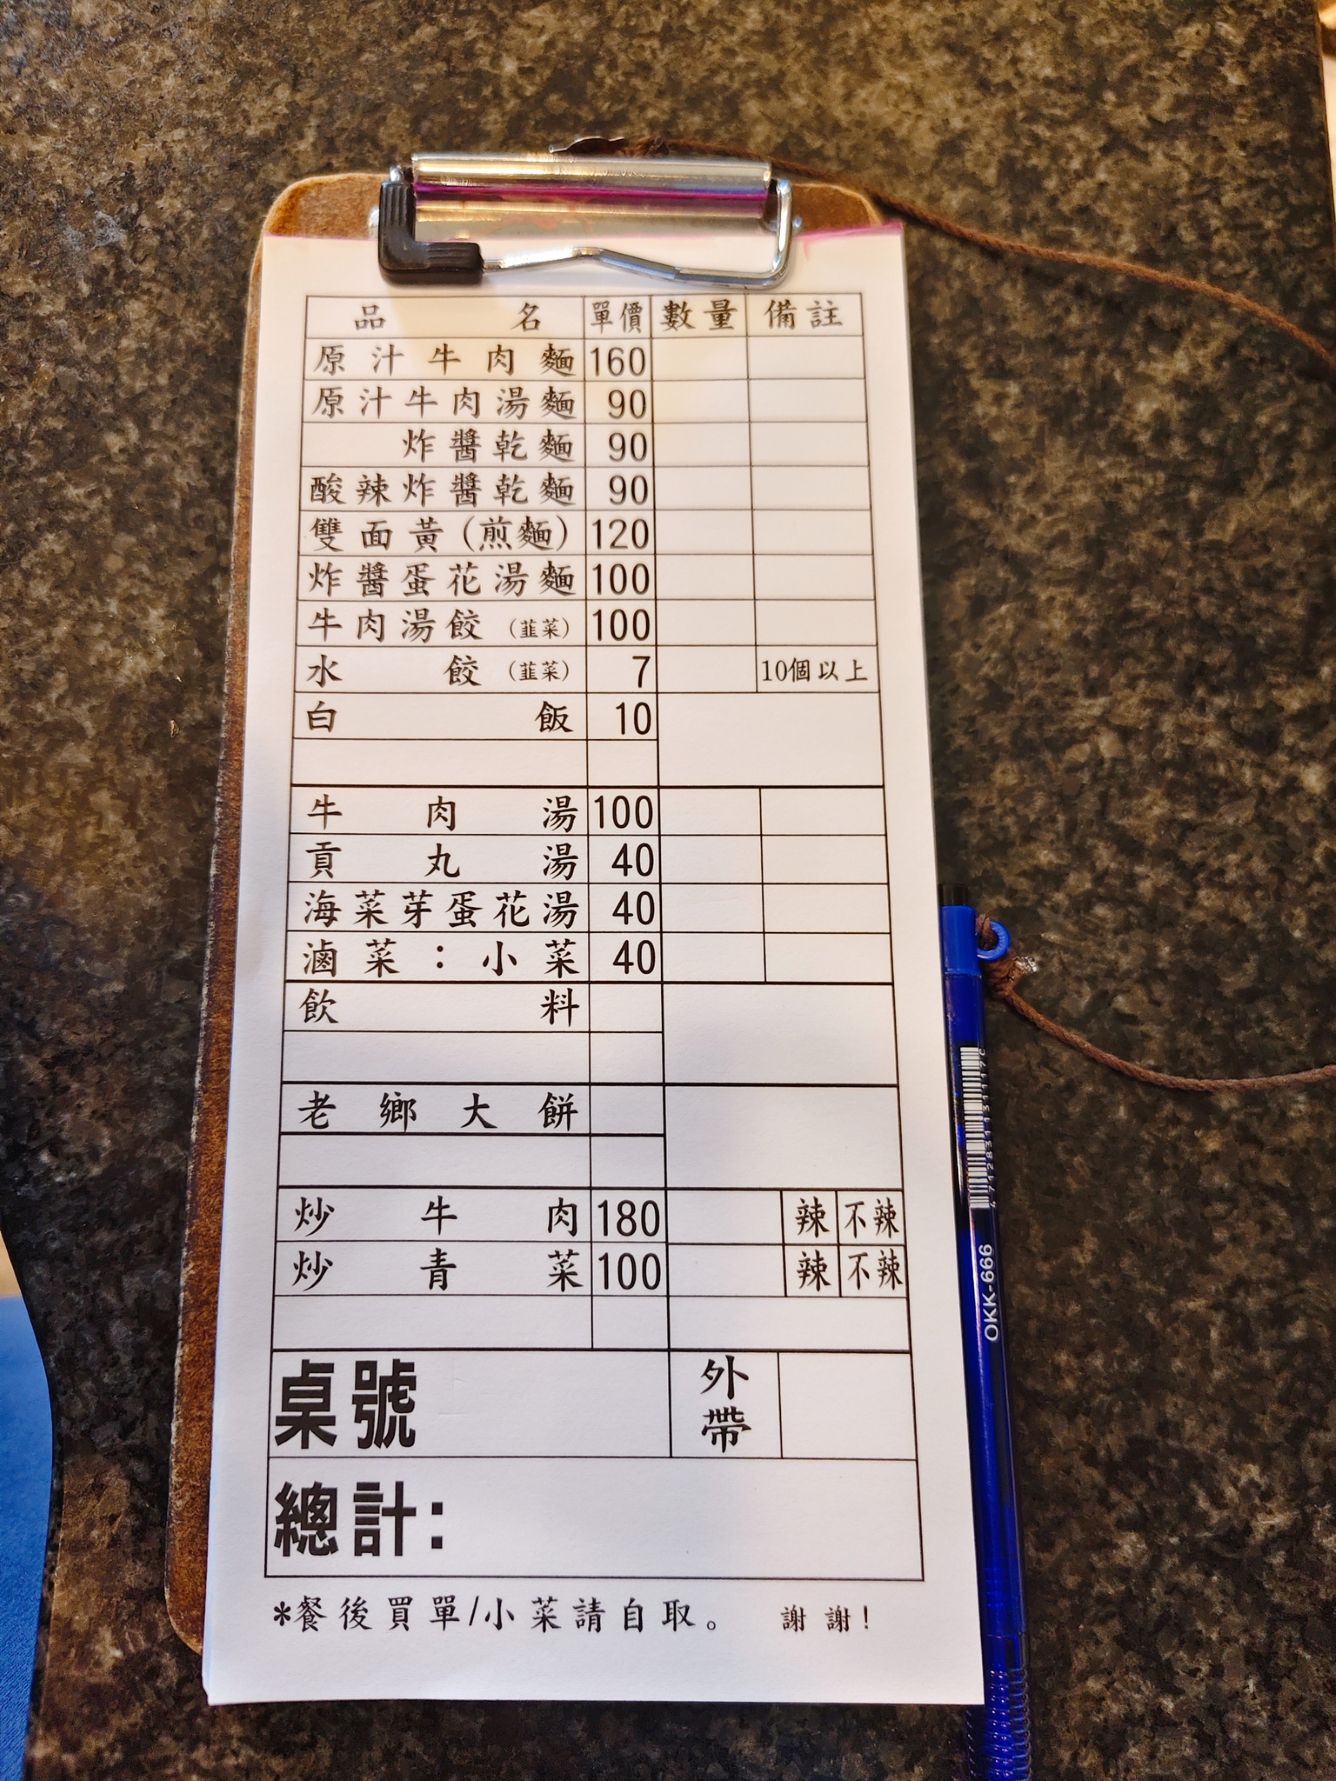 品名 單價 數量 備註
原汁牛肉麵 160
原汁牛肉湯麵 90
炸醬乾麵 90
酸辣炸醬乾麵 90
雙面黃(煎麵) 120
炸醬蛋花湯麵 100
牛肉湯餃(韮菜) 100
水餃(韮菜) 7 10個以上
白飯 10
牛肉湯 100
貢丸湯 40
海菜芽蛋花湯 40
滷菜:小菜 40
飲料
老鄉大餅
炒牛肉 180 辣 不辣
炒青菜 100 辣 不辣
桌號 外帶
總計:
*餐後買單/小菜請自取。 謝謝!
OKK-666